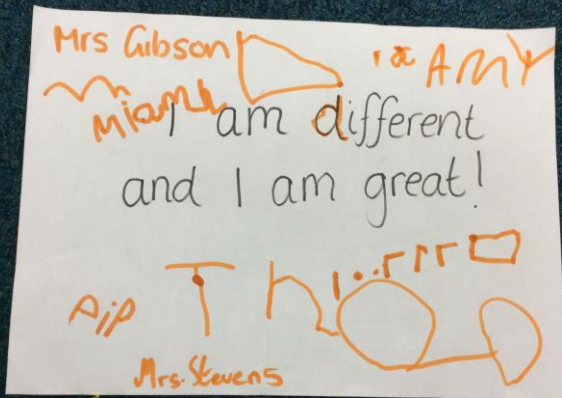 Mrs Gibson
AMY
I am different
and I am great!
Pip
Mrs. Stevens